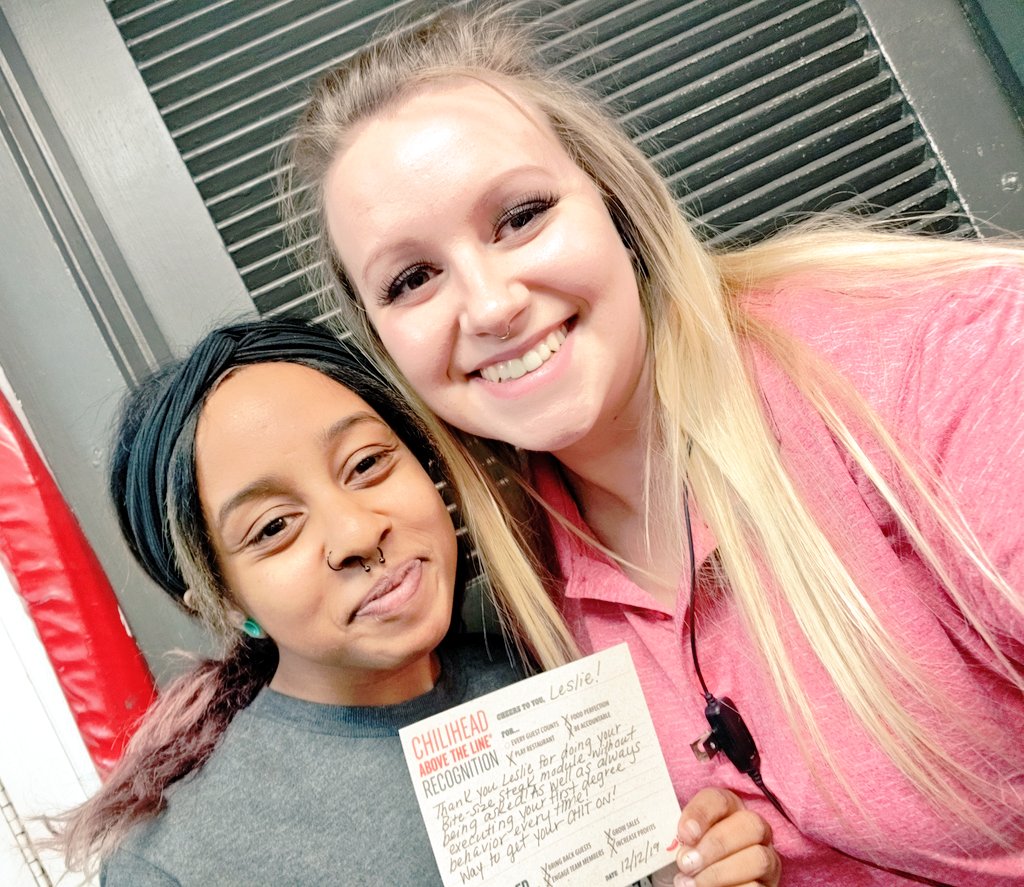 CHEERS TO YOU, Leslie!
CHILIHEAD
ABOVE THE LINE
RECOGNITION
FOR...
EVERY GUEST COUNTS
X FOOD PERFECTION
X PLAY RESTAURANT
X BE ACCOUNTABLE
Thank you Leslie for doing your
Bite-size steak module without
being asked! As well as always
executing your first degree
behavior every time!
Way to get your CHIT ON!
X BRING BACK GUESTS
X GROW SALES
X ENGAGE TEAM MEMBERS
X INCREASE PROFITS
DATE 12/12/19